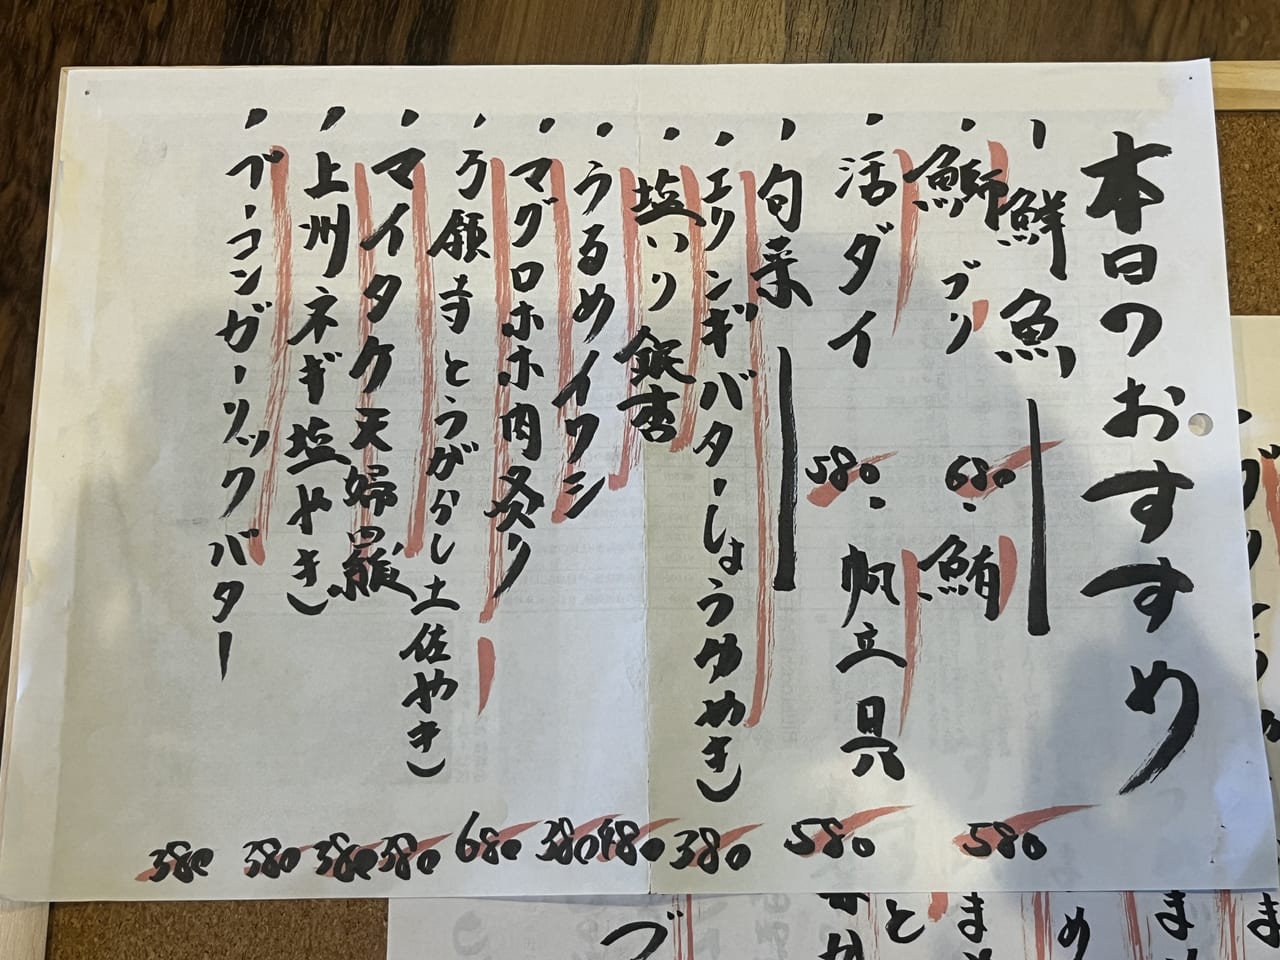 本日のおすすめ
鮮魚
・鰤ブリ 680
・鮪 580
・活ダイ 580
・帆立貝 580
・旬菜
・エリンギバターしょうゆやき 380
・塩いり銀杏 480
・うるめイワシ 380
・マグロホホ肉炙り 680
・万願寺とうがらし土佐やき 380
・マイタケ天婦羅 380
・上州ネギ塩やき 380
・ベーコンガーリックバター 380